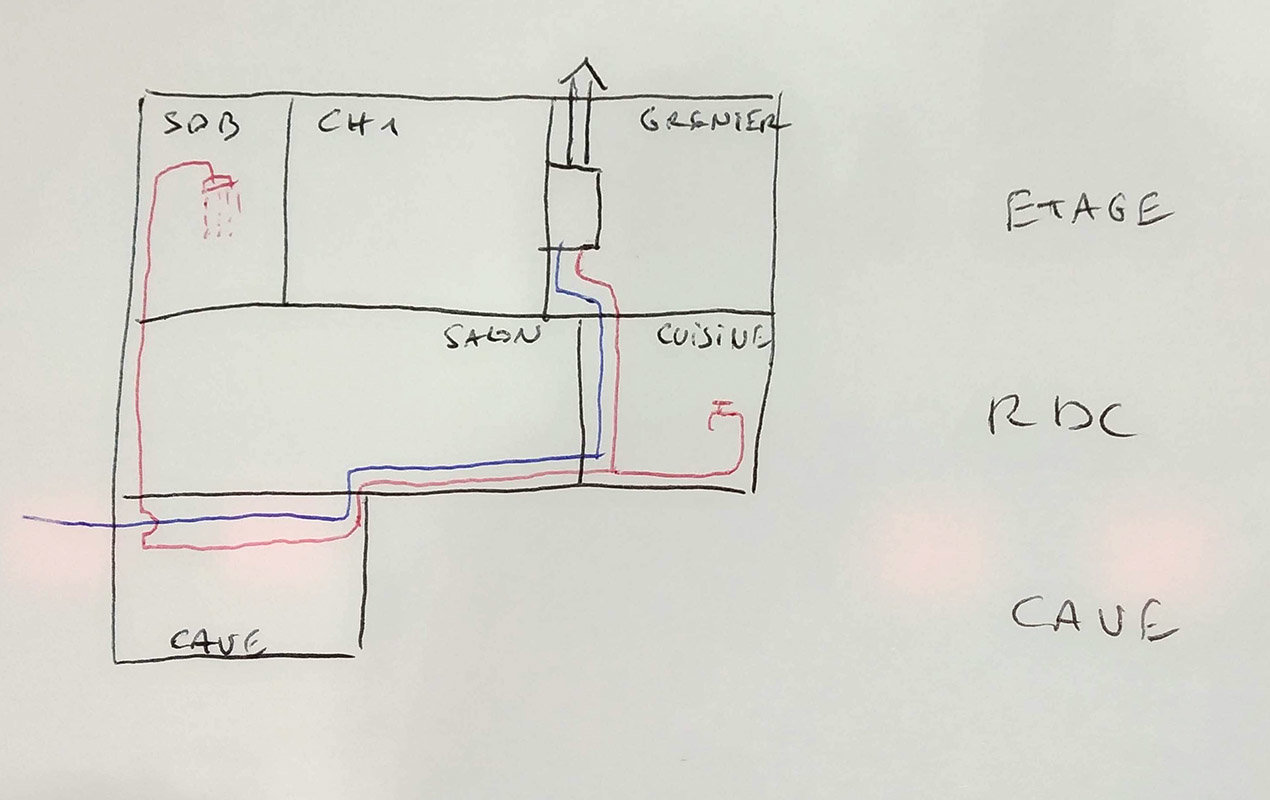 SDB CH1 GRENIER
ETAGE
SALON CUISINE
RDC
CAVE
CAVE